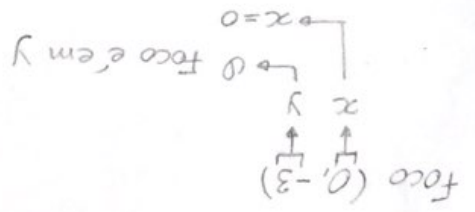 Foco (0, -3)
x y
O Foco é em y
x = 0